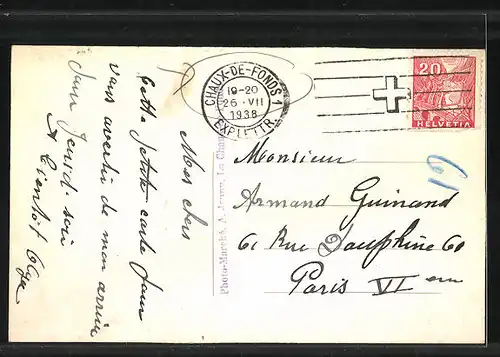 CHAUX-DE-FONDS 1
19-20
26·VII
1938
EXP. LETTR.
20
HELVETIA
61
Mes chers
Cette petite carte pour
vous avertir de mon arrivée
pour Jeudi soir
A bientôt
Photo-Marché, La Chaux
Monsieur
Armand Guinand
61 Rue Dauphine 60
Paris VI em